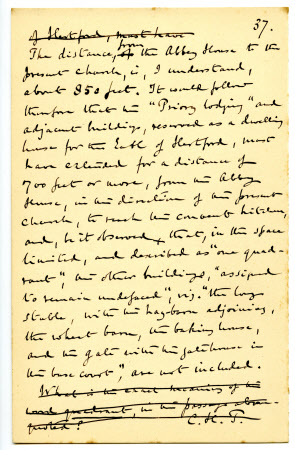 37.
of Hertford, must have
The distance, of from the Abbey House to the
present church, is, I understand,
about 850 feet. It would follow
therefore that the "Priory lodging" and
adjacent buildings, reserved as a dwelling
house for the Earl of Hertford, must
have extended for a distance of
700 feet or more, from the Abbey
House, in the direction of the present
church, to reach the convent kitchen,
and, be it observed, that, in the space
limited, and described as "one quad-
rant", the other buildings, "assigned
to remain undefaced", viz. "the long
stable, with the haybarn adjoining,
the wheat barn, the baking house,
and the gate with the gatehouse in
the base court", are not included.
What is the exact meaning of the
word quadrant, in the passage above
quoted? C.H.T.